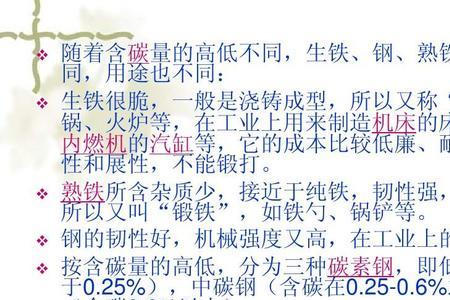 随着含碳量的高低不同，生铁、钢、熟铁
同，用途也不同：
生铁很脆，一般是浇铸成型，所以又称“
锅、火炉等，在工业上用来制造机床的床
内燃机的汽缸等，它的成本比较低廉、耐
性和展性，不能锻打。
熟铁所含杂质少，接近于纯铁，韧性强，
所以又叫“锻铁”，如铁勺、锅铲等。
钢的韧性好，机械强度又高，在工业上的
按含碳量的高低，分为三种碳素钢，即低
于0.25%），中碳钢（含碳在0.25-0.6%